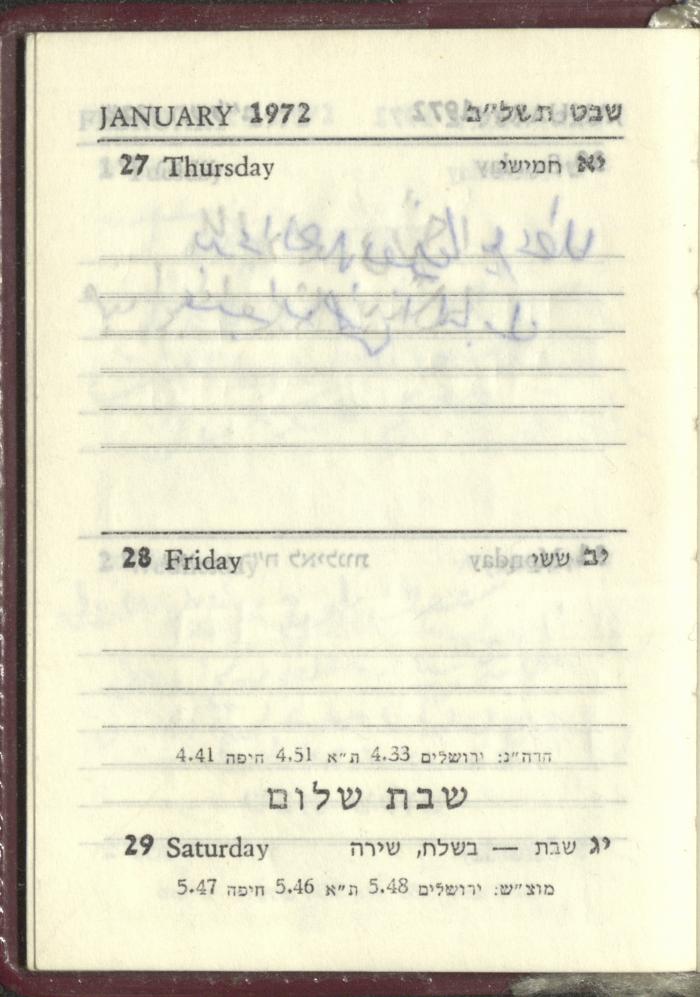 JANUARY 1972 שבט תשל״ב
27 Thursday יא חמישי
28 Friday יב ששי
הדה״נ: ירושלים 4.33 ת״א 4.51 חיפה 4.41
שבת שלום
29 Saturday יג שבת — בשלח, שירה
מוצ״ש: ירושלים 5.48 ת״א 5.46 חיפה 5.47